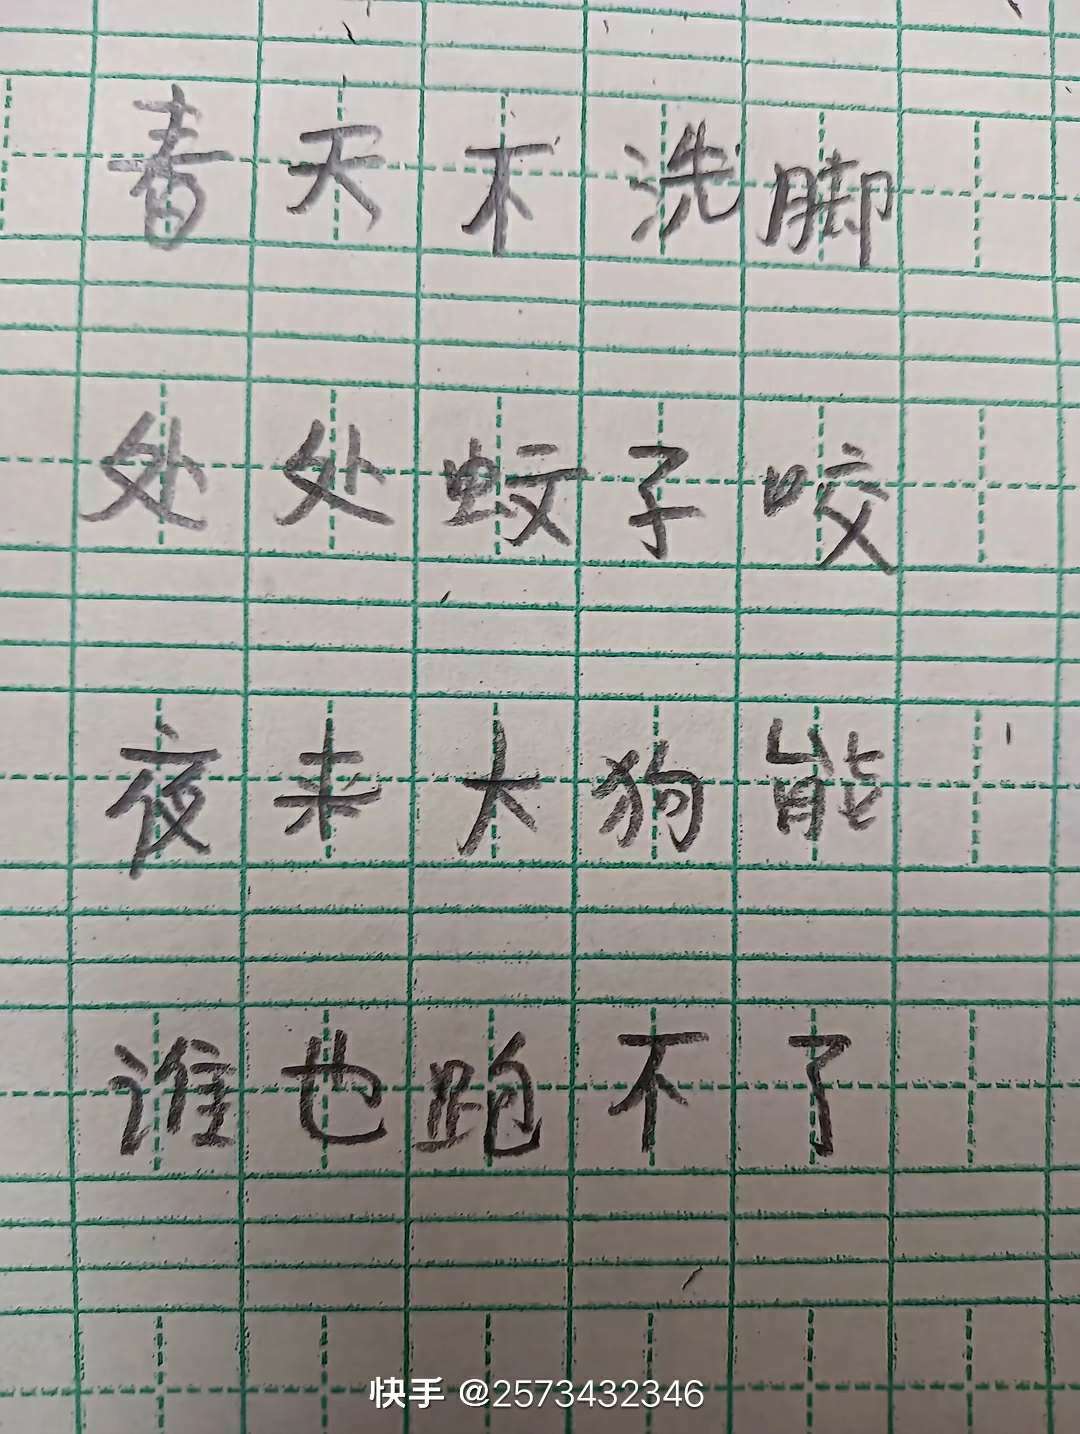 春天不洗脚
处处蚊子咬
夜来大狗能
谁也跑不了
快手 @2573432346